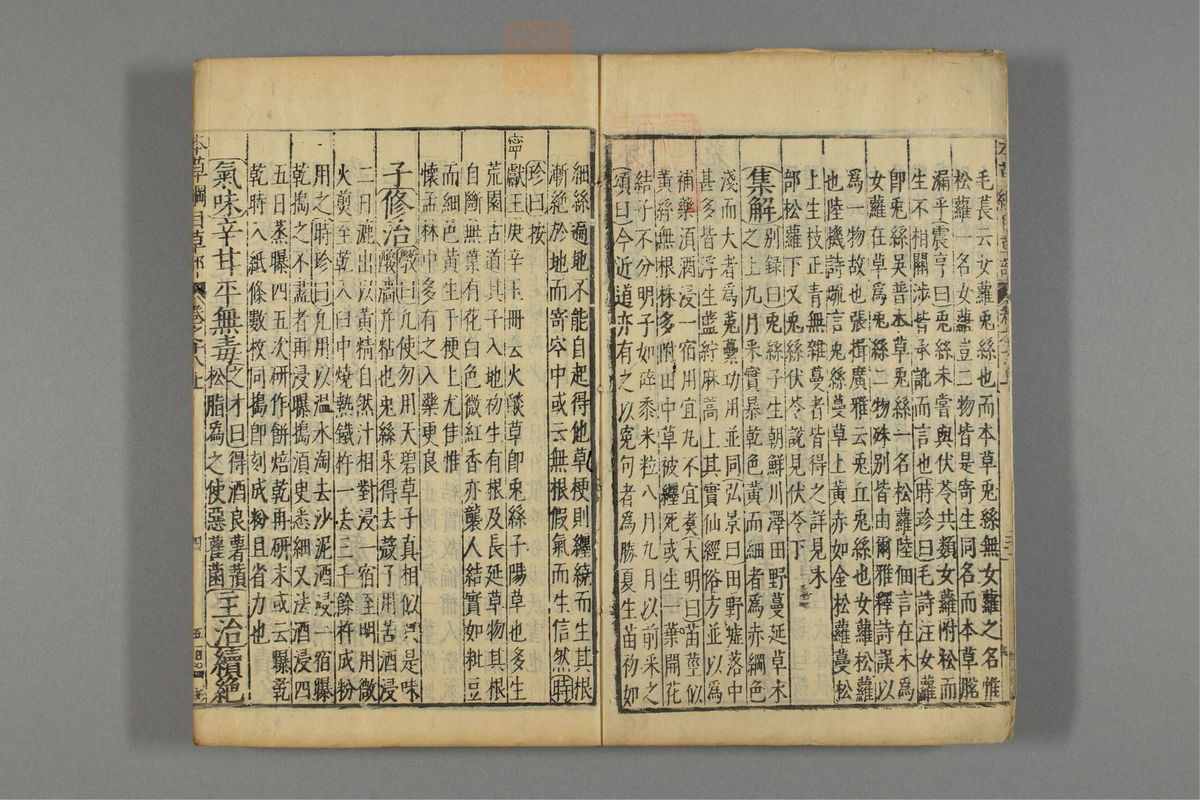 毛萇云女蘿兎絲也而本草兎絲無女蘿之名惟
松蘿一名女蘿豈二物皆是寄生同名而本草脫
漏乎震亨曰兎絲未嘗與伏苓共類女蘿附松而
生不相關涉皆承訛而言也時珍曰毛詩注女蘿
卽兎絲吳普本草兎絲一名松蘿陸佃言在木爲
女蘿在草爲兎絲二物殊别皆由爾雅釋詩誤以
爲一物故也張揖廣雅云兎丘兎絲也女蘿松蘿
也陸機詩疏言兎絲蔓草上黃赤如金松蘿蔓松
上生枝正青無雜蔓者皆得之詳見木
部松蘿下又兎絲伏苓說見伏苓下
集解别録曰兎絲子生朝鮮川澤田野蔓延草木
之上九月采實暴乾色黃而細者爲赤網色
淺而大者爲菟虆功用並同弘景曰田野墟落中
甚多皆浮生藍紵麻蒿上其實仙經俗方並以爲
補藥須酒浸一宿用宜丸不宜煑大明曰苗莖似
黃絲無根株多附田中草被纏死或生一葉開花
結子不分明子如碎黍米粒八月九月以前采之
頌曰今近道亦有之以寃句者爲勝夏生苗初如
細絲遍地不能自起得他草梗則纏繞而生其根
漸絶於地而寄空中或云無根假氣而生信然時
珍曰按
寧獻王庚辛玉冊云火燄草卽兎絲子陽草也多生
荒園古道其子入地初生有根及長延草物其根
自斷無葉有花白色微紅香亦襲人結實如粃豆
而細色黃生于梗上尤佳惟
懷孟林中多有之入藥更良
子修治斅曰凡使勿用天碧草子真相似只是味
酸濇并粘也兎絲采得去殼子用苦酒浸
二日漉出以黃精自然汁相對浸一宿至明用微
火煎至乾入臼中燒熱鐵杵一去三千餘杵成粉
用之時珍曰凡用以温水淘去沙泥酒浸一宿曝
乾搗之不盡者再浸曝搗須臾悉細又法酒浸四
五日蒸曝四五次研作餅焙乾再研末或云曝乾
乾時入紙條數枚同搗卽刻成粉且省力也
氣味辛甘平無毒之才曰得酒良薯蕷
松脂爲之使惡雚菌主治續絶
本草綱目草部